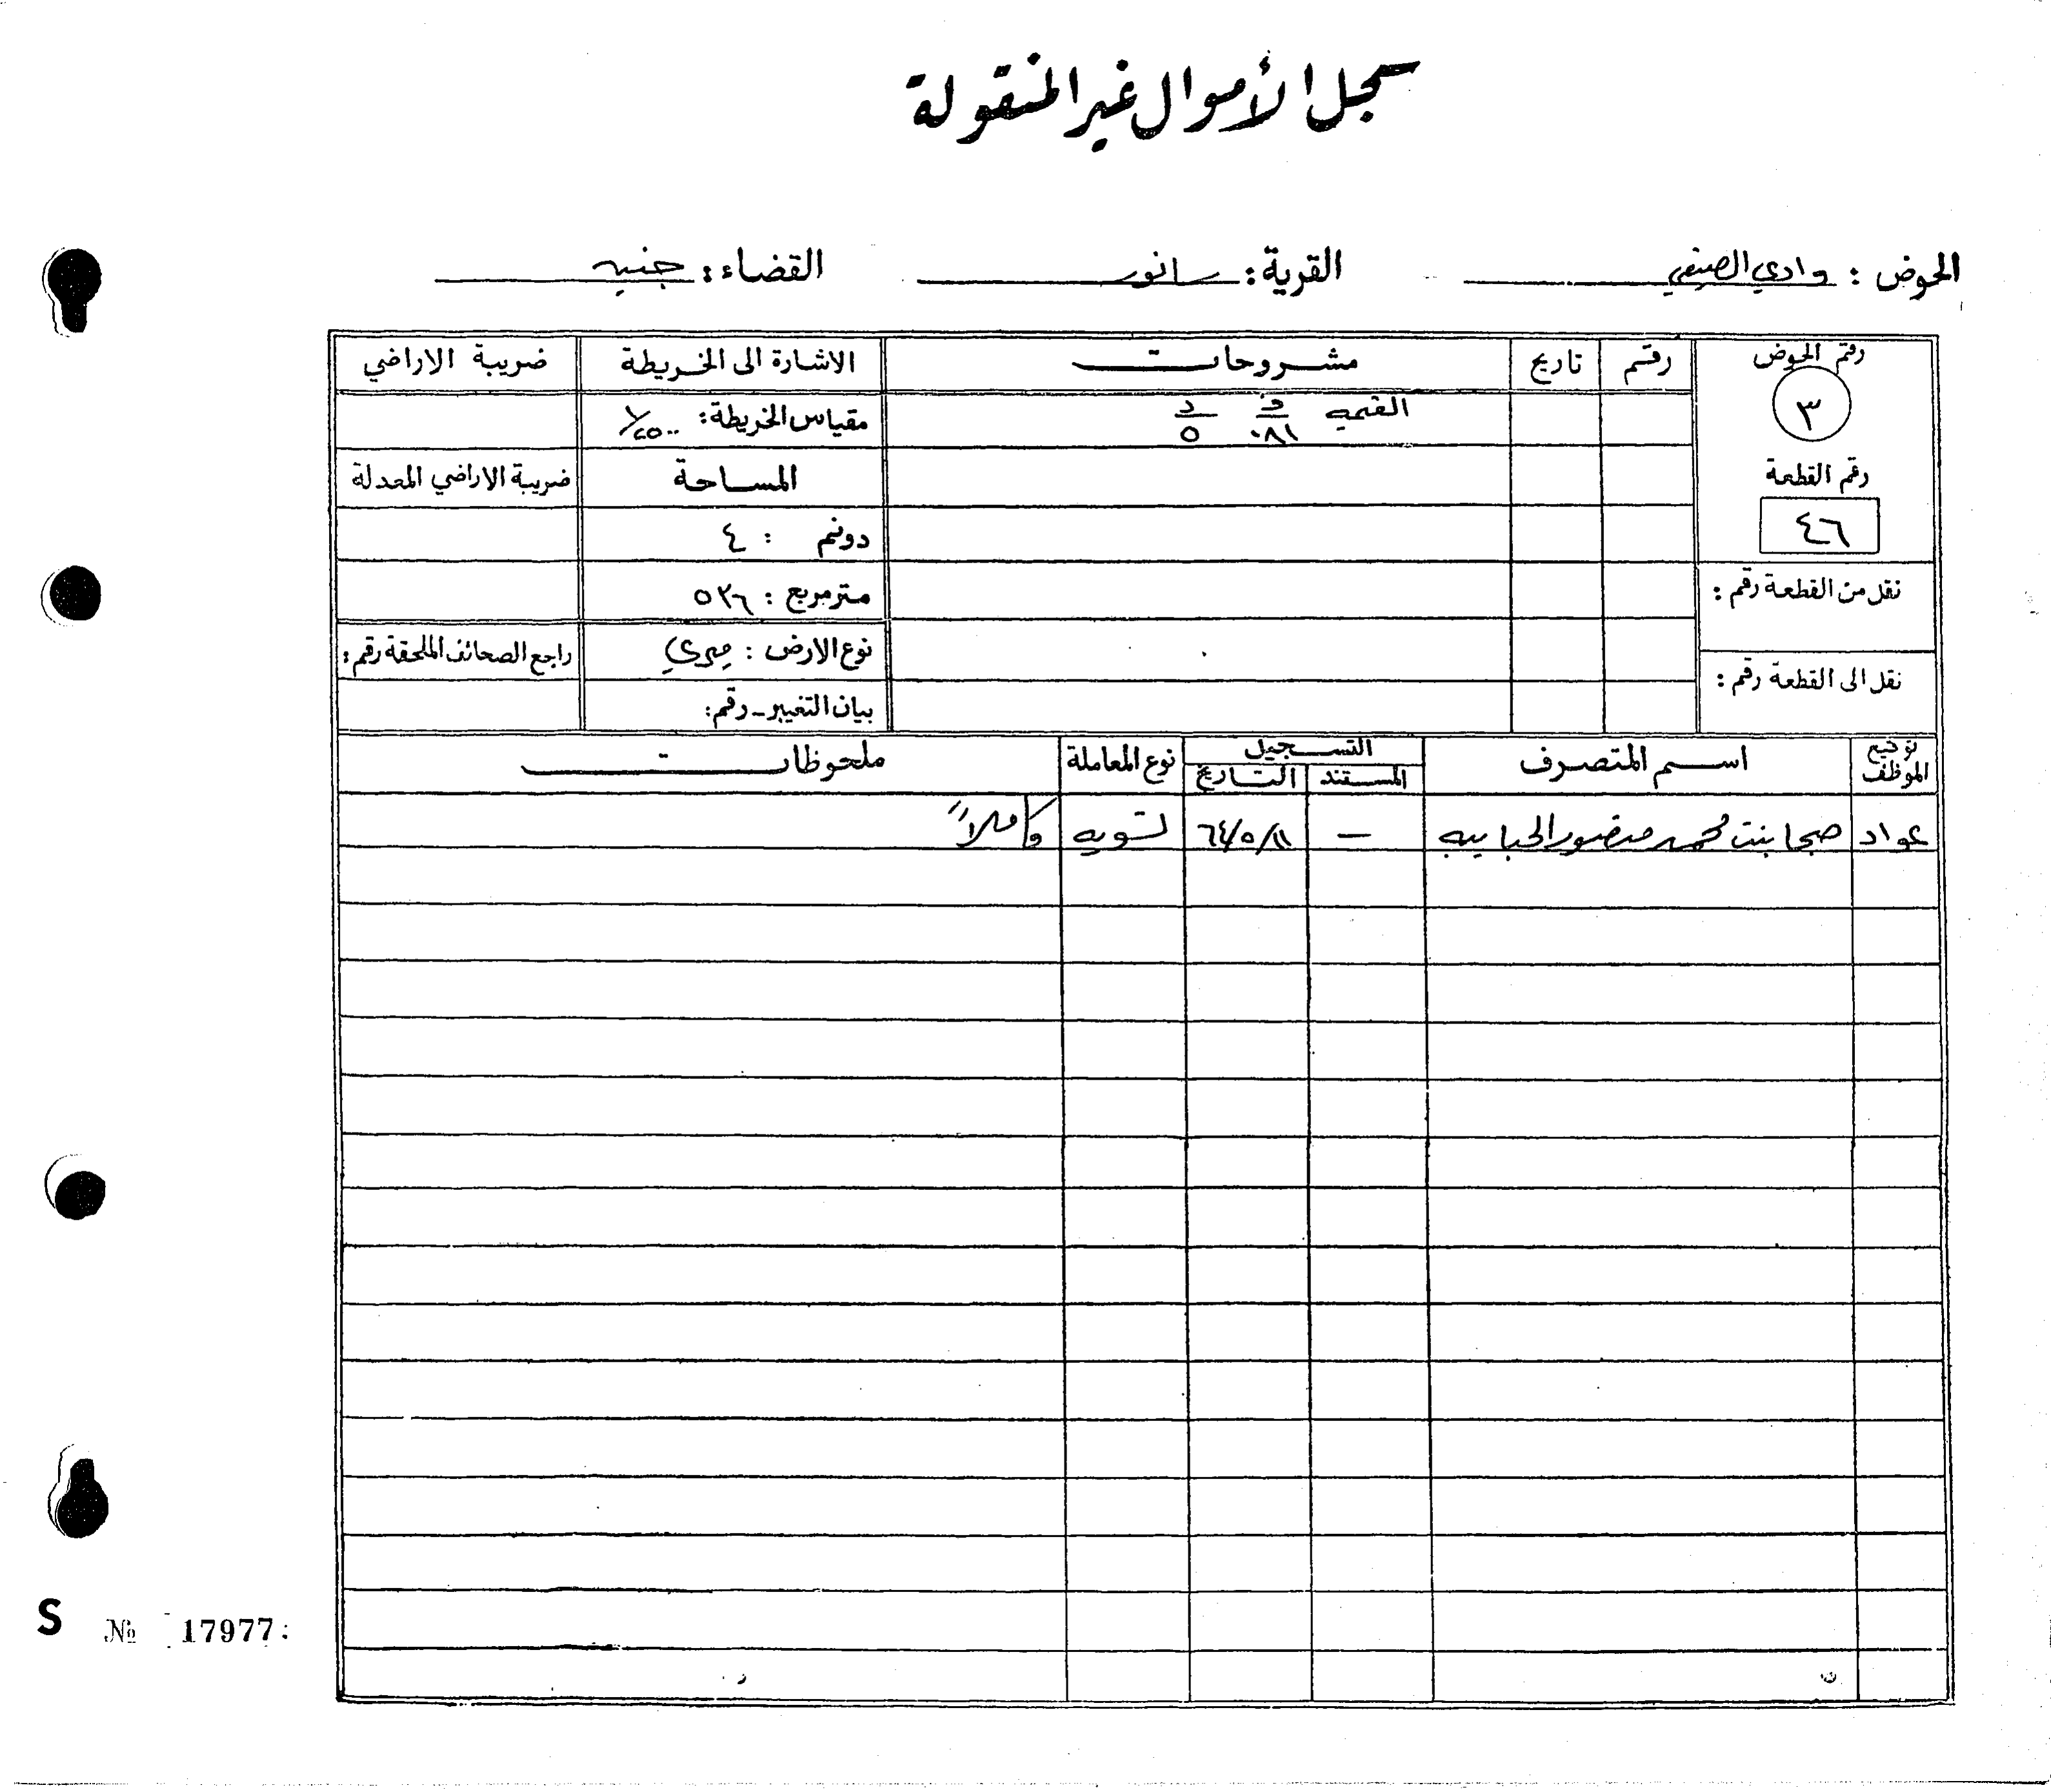 سجل الأموال غير المنقولة
الحوض : وادي الصيفي القرية : سانور القضاء : جنين
رقم الحوض رقم تاريخ مشروحات الاشارة الى الخريطة ضريبة الاراضي
٣ القيمه ف ٠٨١ د ٥ مقياس الخريطة : ١/٢٥٠٠
رقم القطعة المساحة ضريبة الاراضي المعدلة
٤٦ دونم : ٤
نقل من القطعة رقم : متر مربع : ٥٢٦
نوع الارض : ميري راجع الصحائف الملحقة رقم :
نقل الى القطعة رقم : بيان التغيير - رقم :
توقيع الموظف اسم المتصرف التسجيل نوع المعاملة ملحوظات
المستند التاريخ
عواد بنت محمد منصور الحبايبه — ٦٤/٥/١١ تسويه كاملاً
S № 17977